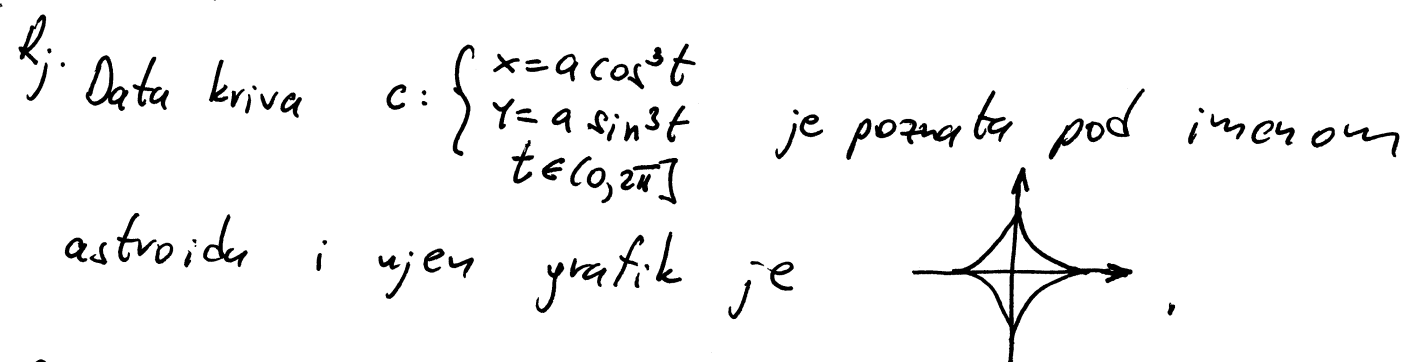 Rj. Data kriva c: { x = a cos³t
y = a sin³t
t ∈ (0, 2π] je poznata pod imenom
astroida i njen grafik je .